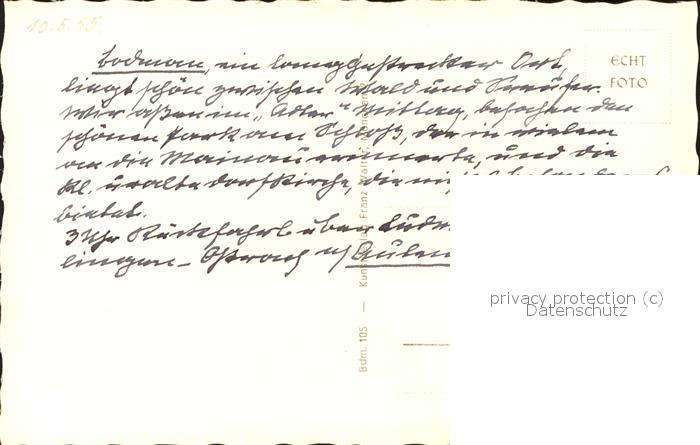 10.5.55.
Bodman, ein langgestreckter Ort,
liegt schön zwischen Wald und Seeufer.
Wir aßen im „Adler“ Mittag, besahen den
schönen Park am Schloß, der in vielem
an die Mainau erinnerte, und die
kl. uralte Dorfkirche, die
bietet.
3 Uhr Rückfahrt über
lingen - Ostrach n/ Aulen
ECHT
FOTO
Bdm. 105 — Franz
privacy protection (c)
Datenschutz